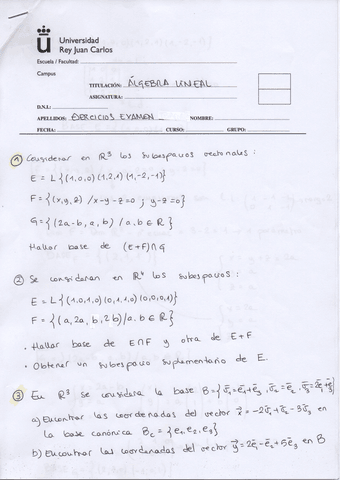 Universidad
Rey Juan Carlos
Escuela / Facultad:
Campus
TITULACIÓN: ÁLGEBRA LINEAL
ASIGNATURA:
D.N.I.:
APELLIDOS: EJERCICIOS EXAMEN NOMBRE:
FECHA: CURSO: GRUPO:
① Considerar en R³ los subespacios vectoriales:
E = L{(1,0,0)(1,2,1)(1,-2,-1)}
F = {(x,y,z) / x-y-z=0 ; y-z=0}
G = {(2a-b, a, b) / a.b ∈ R}
Hallar base de (E+F)∩G
② Se consideran en R⁴ los subespacios:
E = L{(1,0,1,0)(0,1,1,0)(0,0,0,1)}
F = {(a, 2a, b, 2b) / a.b ∈ R}
• Hallar base de E∩F y otra de E+F
• Obtener un subespacio suplementario de E.
③ En R³ se considera la base B={v̄₁=ē₁+ē₃, v̄₂=ē₂, v̄₃=2ē₁+ē₃}
a) Encontrar las coordenadas del vector x̄ = -2v̄₁+v̄₂-3v̄₃ en
la base canónica Bc = {e₁,e₂,e₃}
b) Encontrar las coordenadas del vector ȳ = 2ē₁-ē₂+5ē₃ en B